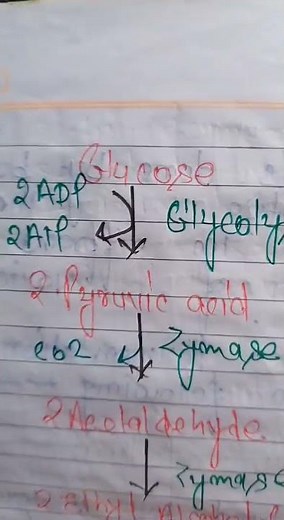 Glucose
2ADP
Glycoly
2ATP
2 Pyruvic acid
co2 Zymase
2 Acetaldehyde
Zymase
2 Ethyl Alcohol